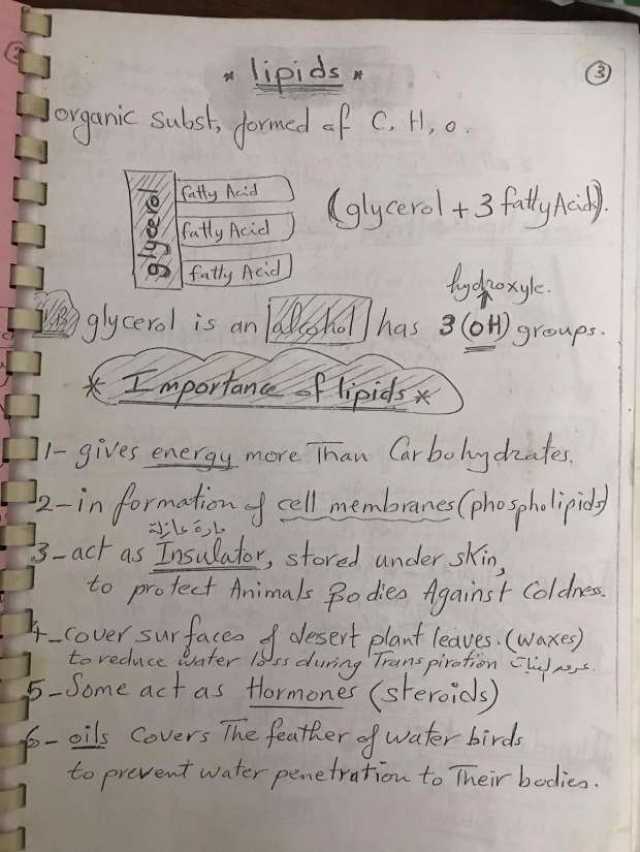 * lipids *
3
organic subst, formed of C, H, o.
glycerol
fatty Acid
fatty Acid
fatty Acid
(glycerol + 3 fatty Acid).
hydroxyle.
glycerol is an alcohol has 3 (OH) groups.
* Importance of lipids *
1- gives energy more Than Carbohydrates.
2- in formation of cell membranes (phospholipids)
مادة عازلة
3- act as Insulator, stored under skin,
to protect Animals Bodies Against Coldness.
4- cover surfaces of desert plant leaves. (waxes)
to reduce water loss during Transpiration
5- Some act as Hormones (steroids)
6- oils Covers The feather of water birds
to prevent water penetration to Their bodies.